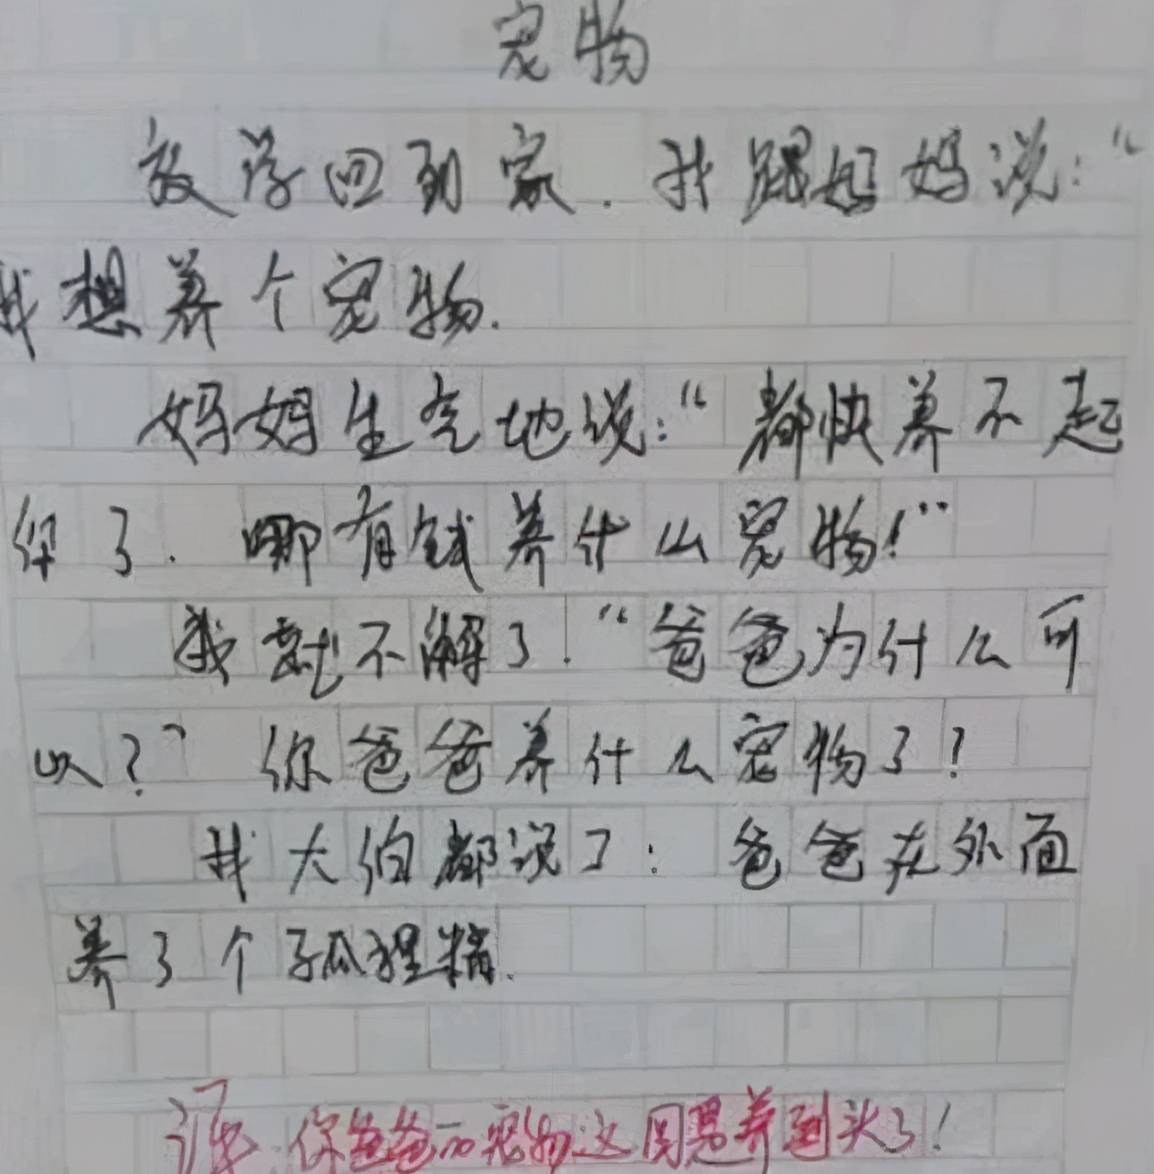 宠物
放学回到家.我跟妈妈说:“
我想养个宠物.
妈妈生气地说:“都快养不起
你了.哪有钱养什么宠物!”
我就不解了!“爸爸为什么可
以?”你爸爸养什么宠物了?
我大伯都说了:爸爸在外面
养了个孤狸精.
你爸爸的宠物这周要养到头了!